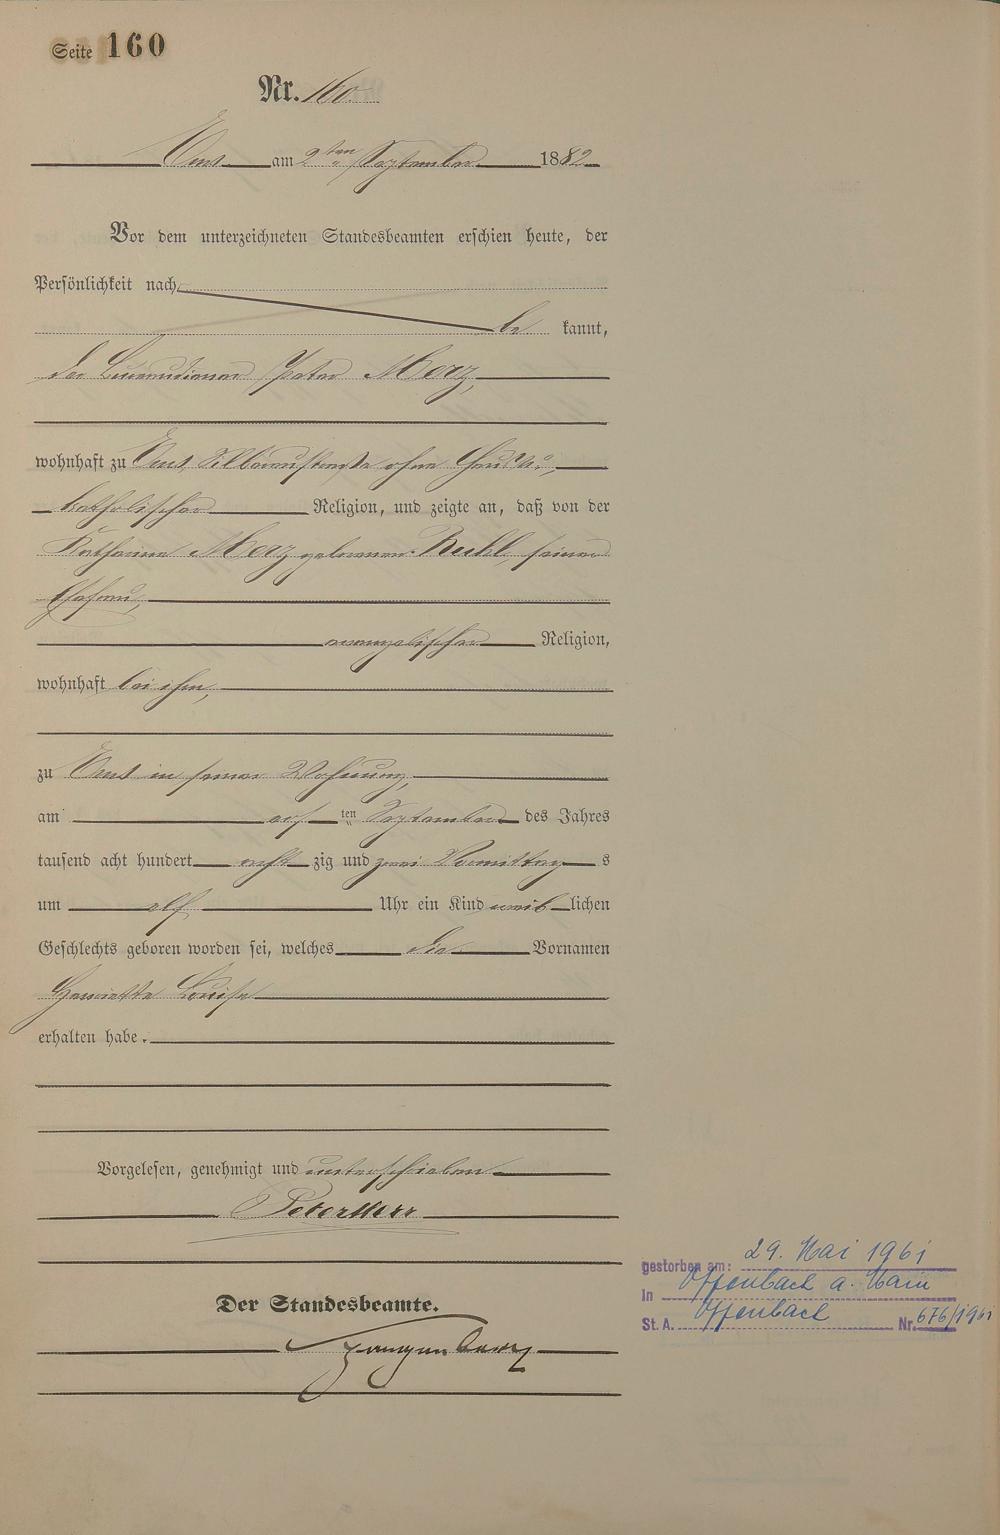 Seite 160
Nr. 160.
Ems am 2ten September 1882
Vor dem unterzeichneten Standesbeamten erschien heute, der
Persönlichkeit nach
be kannt,
der Peter Merz,
wohnhaft zu Ems, Silberaustraße ohne Haus No,
katholischer Religion, und zeigte an, daß von der
Katharine Merz geborenen Ruhl, seiner
Ehefrau,
evangelischer Religion,
wohnhaft bei ihm,
zu Ems in seiner Wohnung,
am ersten September des Jahres
tausend acht hundert acht zig und zwei Vormittag s
um elf Uhr ein Kind weib lichen
Geschlechts geboren worden sei, welches die Vornamen
Henriette Louise
erhalten habe.
Vorgelesen, genehmigt und unterschrieben
Peter Merz
Der Standesbeamte.
gestorben am: 29. Mai 1961
In Offenbach a. Main
St. A. Offenbach Nr. 676/1961